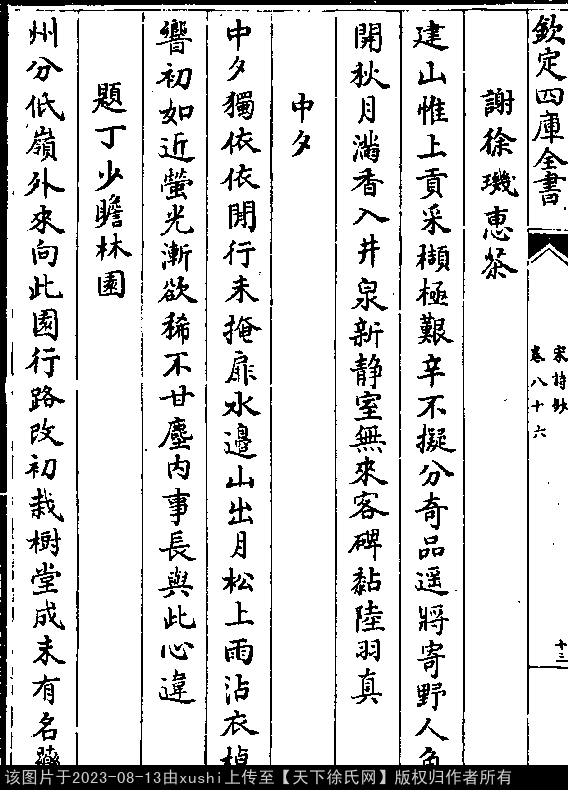 欽定四庫全書
宋詩鈔
卷八十六
十三
謝徐璣惠茶
建山惟上貢采擷極艱辛不擬分奇品遥將寄野人角
開秋月滿香入井泉新静室無來客碑黏陸羽真
中夕
中夕獨依依閒行未掩扉水邊山出月松上雨沾衣
響初如近螢光漸欲稀不甘塵内事長與此心違
題丁少瞻林園
州分低嶺外來向此園行路改初栽樹堂成未有名
该图片于2023-08-13由xushi上传至【天下徐氏网】版权归作者所有